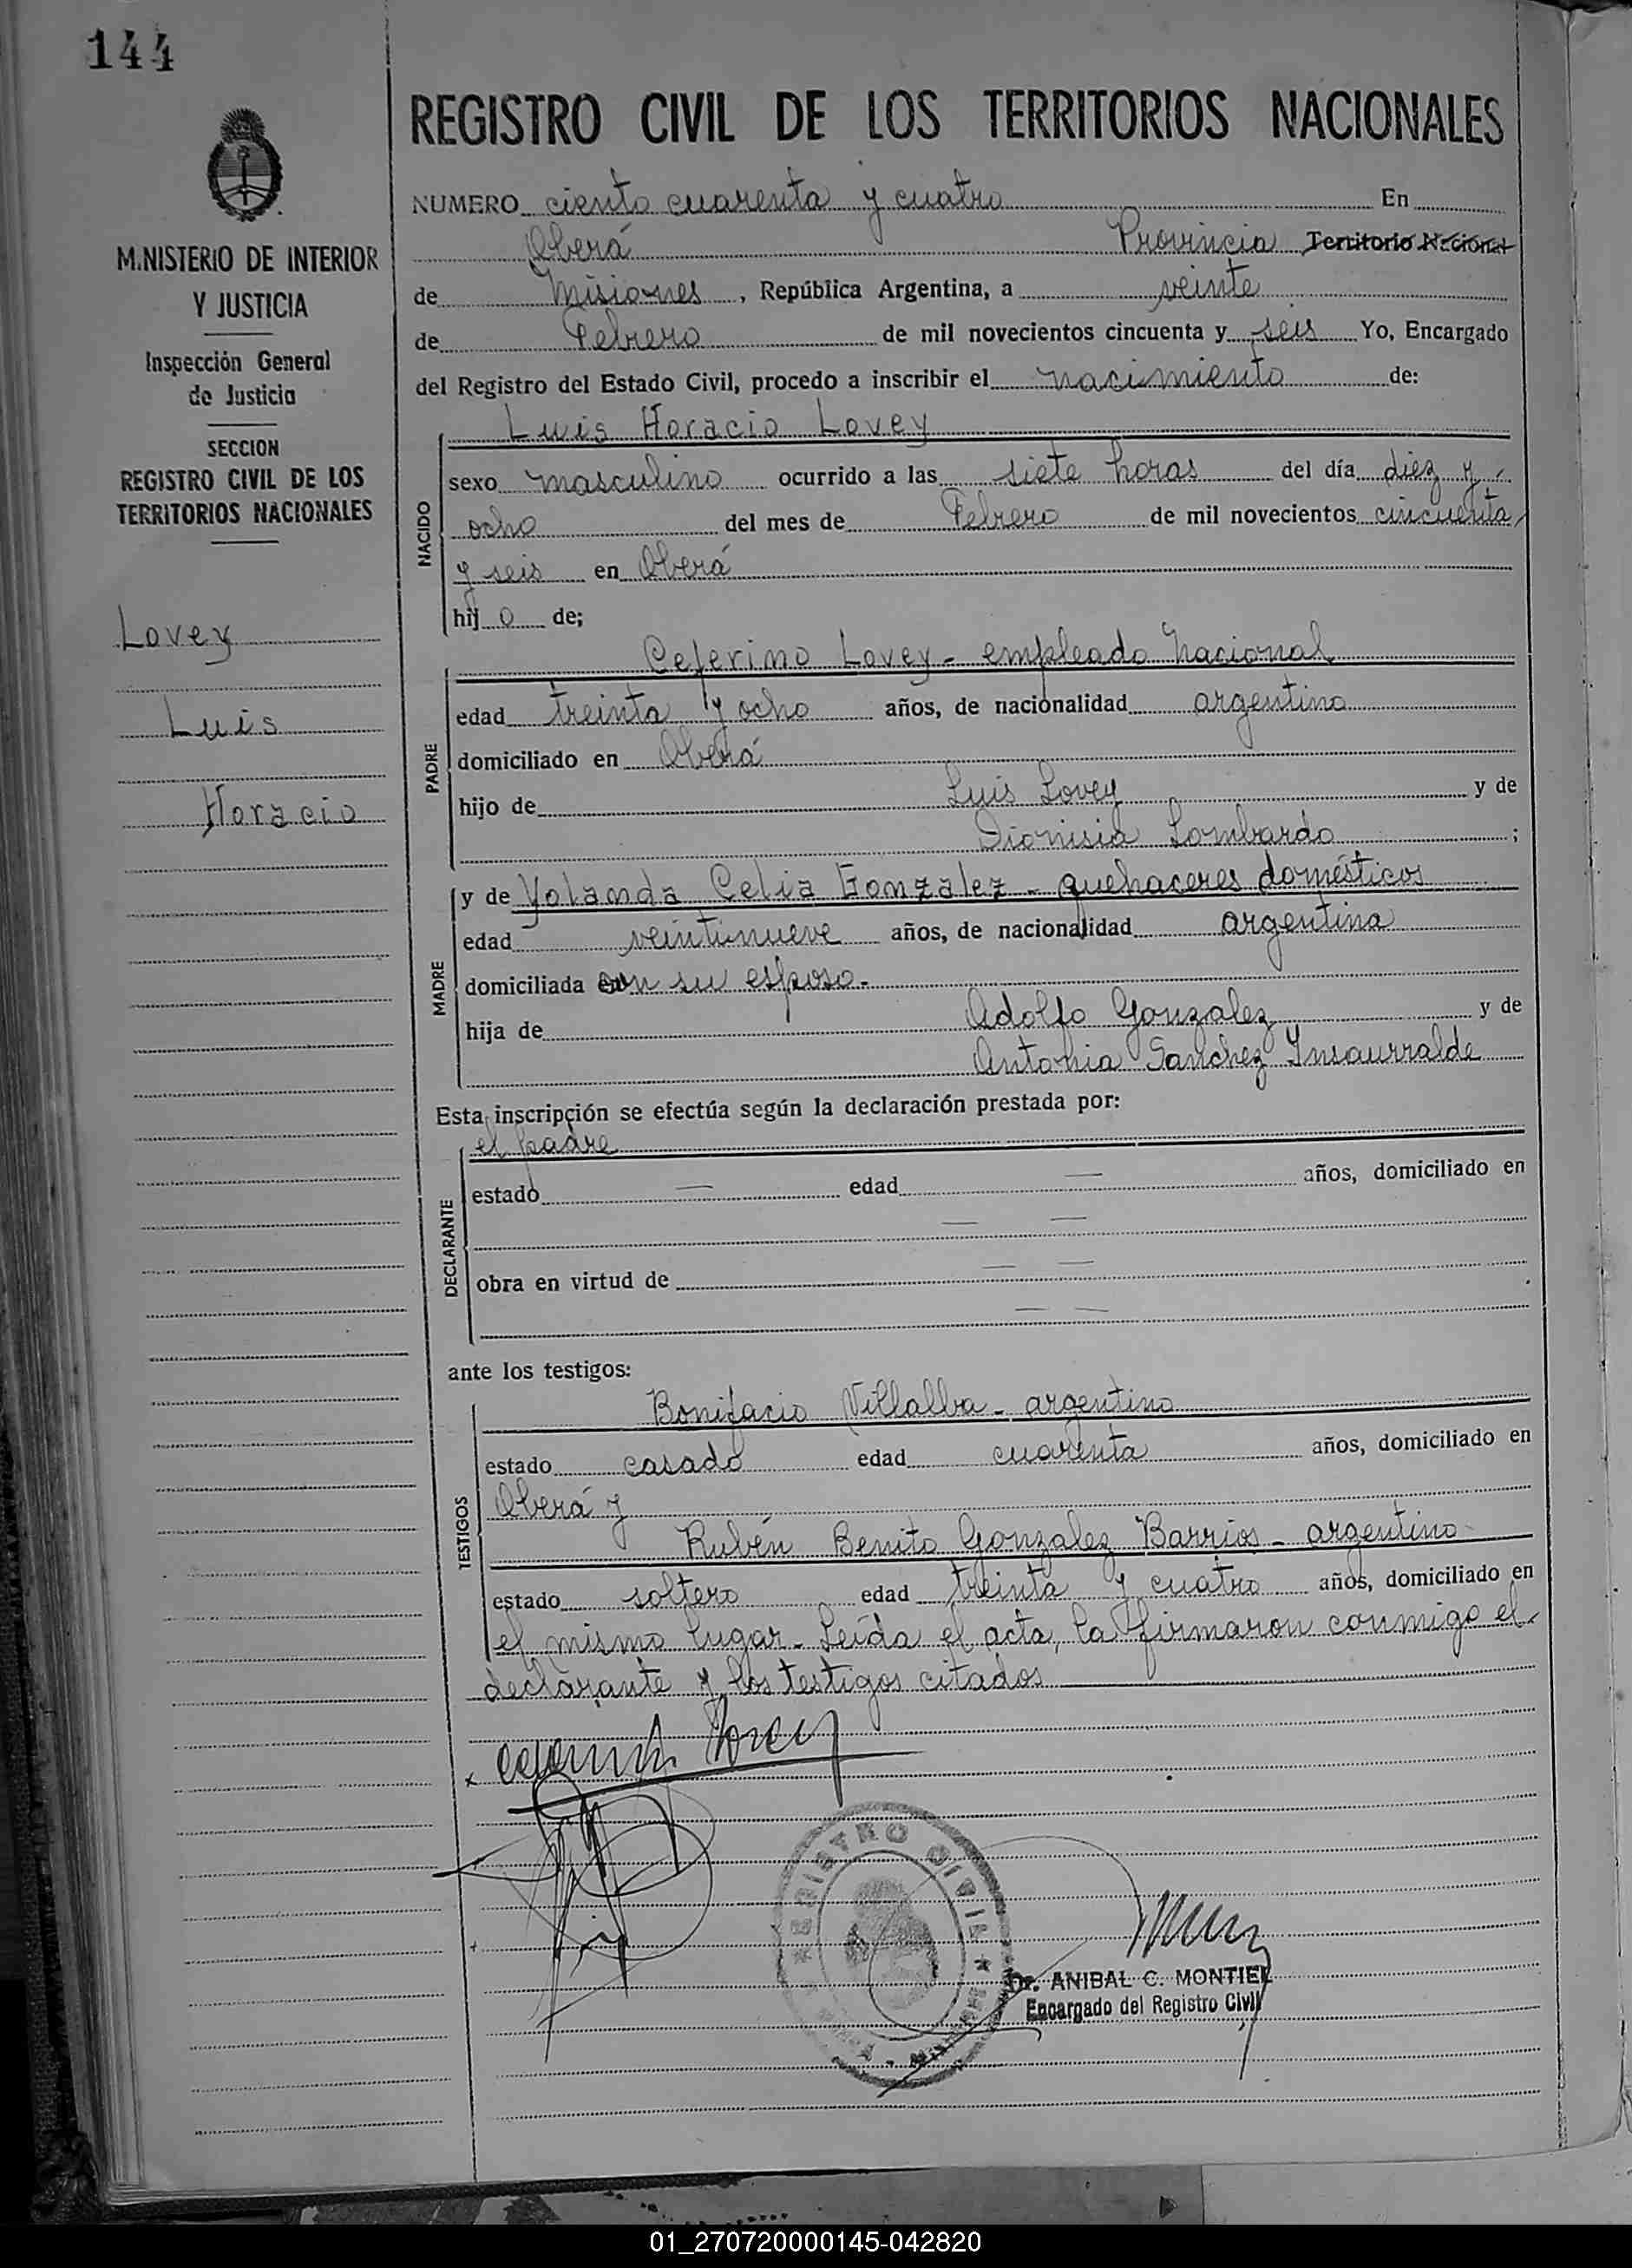 144
REGISTRO CIVIL DE LOS TERRITORIOS NACIONALES
M.NISTERIO DE INTERIOR
Y JUSTICIA
Inspección General
de Justicia
SECCION
REGISTRO CIVIL DE LOS
TERRITORIOS NACIONALES
Lovey
Luis
Horacio
NUMERO ciento cuarenta y cuatro En
Oberá Provincia Territorio Nacional
de Misiones, República Argentina, a veinte
de Febrero de mil novecientos cincuenta y seis Yo, Encargado
del Registro del Estado Civil, procedo a inscribir el nacimiento de:
NACIDO
Luis Horacio Lovey
sexo masculino ocurrido a las siete horas del día diez y
ocho del mes de Febrero de mil novecientos cincuenta
y seis en Oberá
hijo de;
PADRE
Ceferino Lovey - empleado Nacional
edad treinta y ocho años, de nacionalidad argentina
domiciliado en Oberá
hijo de Luis Lovey y de
Dionisia Lombardo ;
MADRE
y de Yolanda Celia Gonzalez - quehaceres domésticos
edad veintinueve años, de nacionalidad argentina
domiciliada con su esposo.-
hija de Adolfo Gonzalez y de
Antonia Sanchez Insaurralde
Esta inscripción se efectúa según la declaración prestada por:
DECLARANTE
el padre
estado — edad — años, domiciliado en
— —
obra en virtud de — —
— —
ante los testigos:
TESTIGOS
Bonifacio Villalba - argentino
estado casado edad cuarenta años, domiciliado en
Oberá y
Rubén Benito Gonzalez Barrios - argentino
estado soltero edad treinta y cuatro años, domiciliado en
el mismo lugar - Leída el acta, la firmaron conmigo el
declarante y los testigos citados
Ceferino Lovey
REGISTRO CIVIL
Dr. ANIBAL C. MONTIEL
Encargado del Registro Civil
01_270720000145-042820